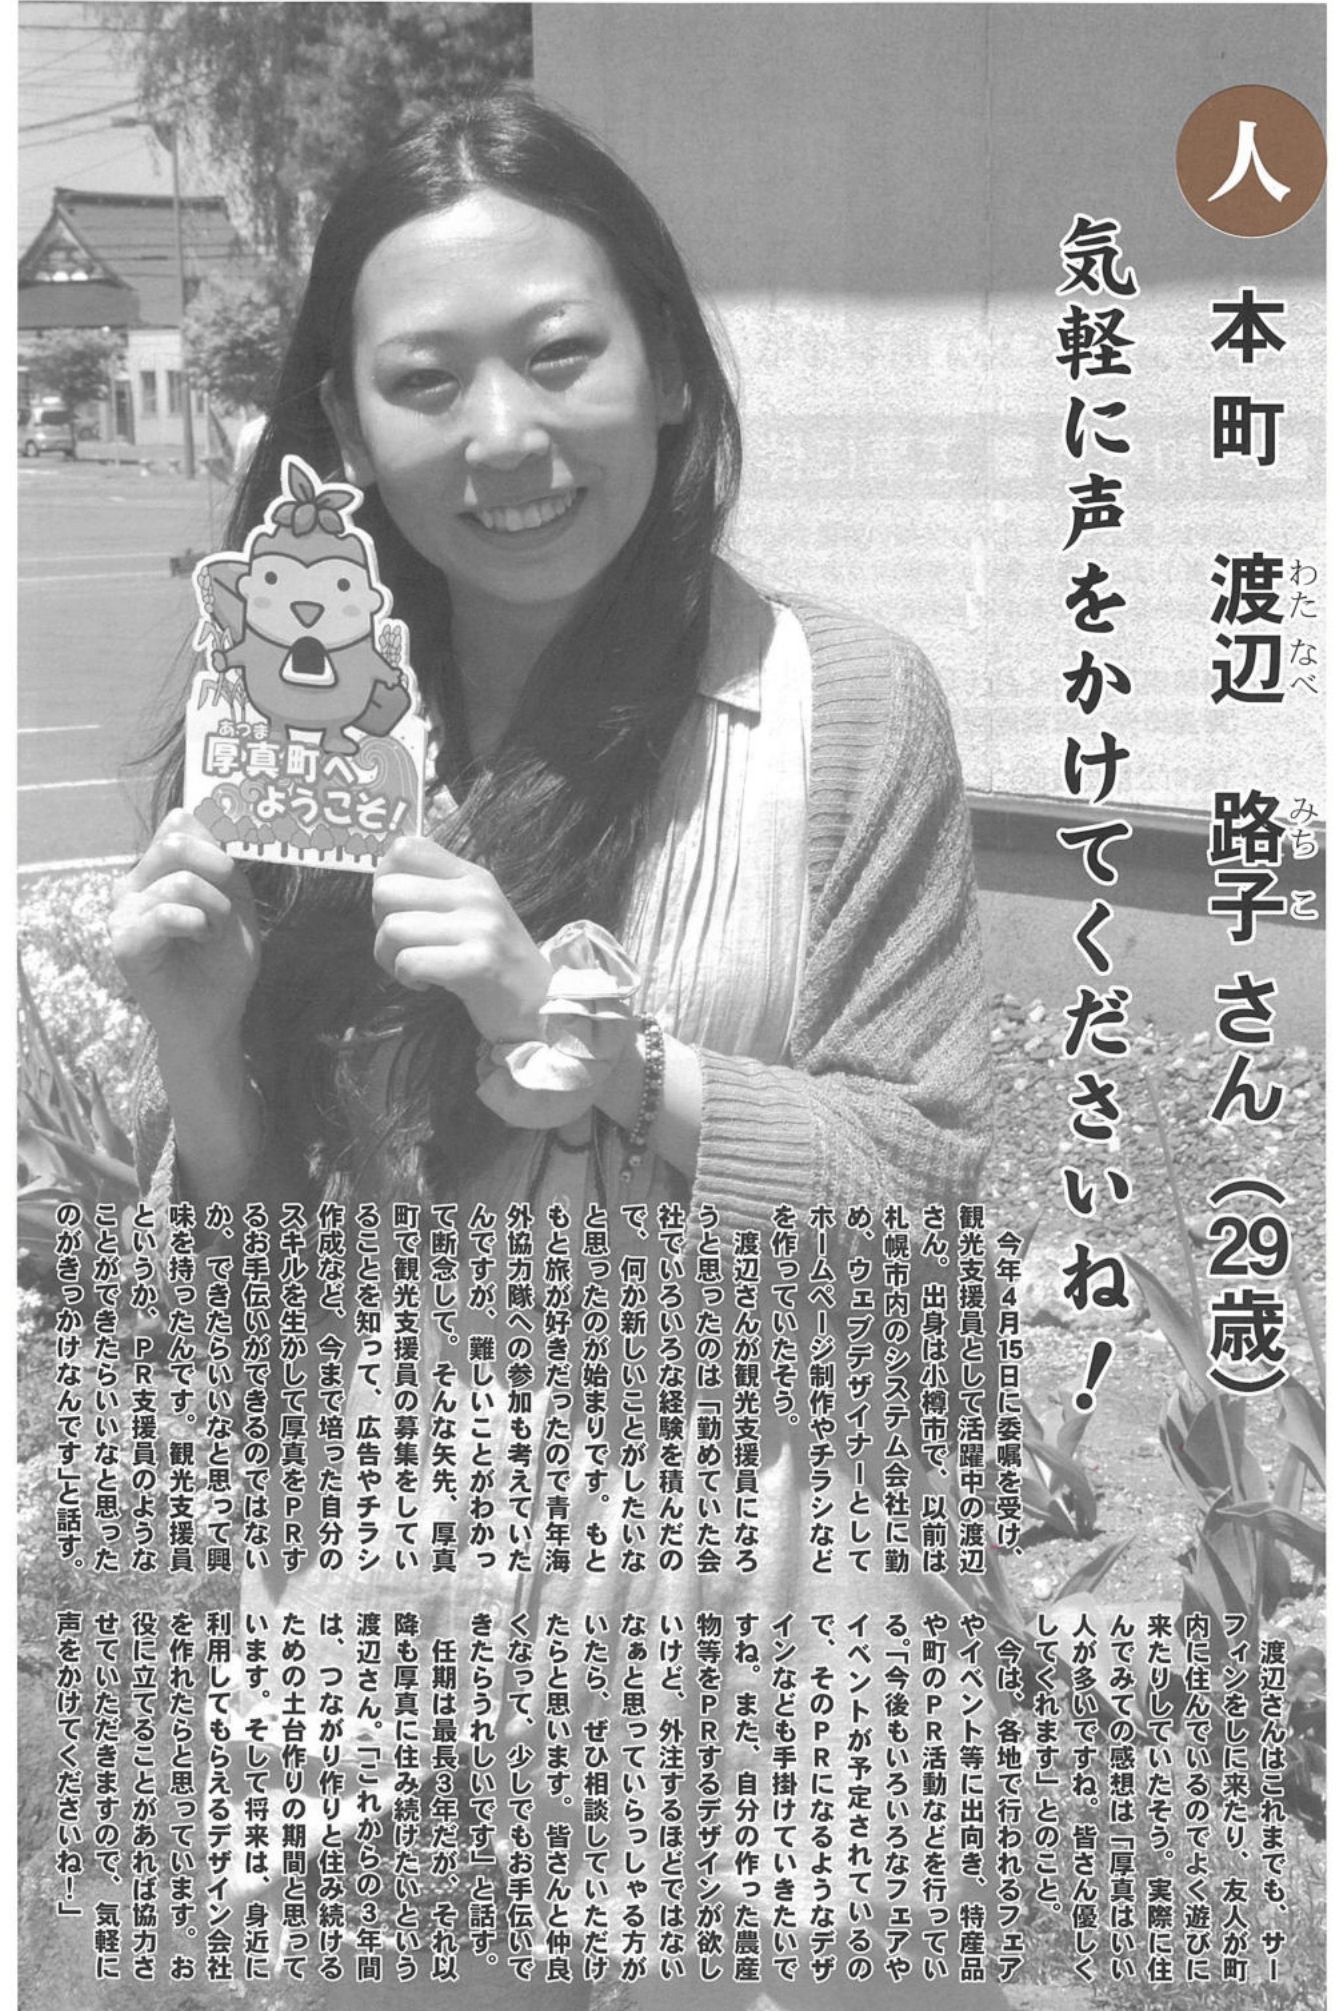 人
本町 渡辺 路子さん（29歳）
わた なべ みち こ
気軽に声をかけてくださいね！
あつま
厚真町へ
ようこそ！
今年４月15日に委嘱を受け、
観光支援員として活躍中の渡辺
さん。出身は小樽市で、以前は
札幌市内のシステム会社に勤
め、ウェブデザイナーとして
ホームページ制作やチラシなど
を作っていたそう。
渡辺さんが観光支援員になろ
うと思ったのは「勤めていた会
社でいろいろな経験を積んだの
で、何か新しいことがしたいな
と思ったのが始まりです。もと
もと旅が好きだったので青年海
外協力隊への参加も考えていた
んですが、難しいことがわかっ
て断念して。そんな矢先、厚真
町で観光支援員の募集をしてい
ることを知って、広告やチラシ
作成など、今まで培った自分の
スキルを生かして厚真をＰＲす
るお手伝いができるのではない
か、できたらいいなと思って興
味を持ったんです。観光支援員
というか、ＰＲ支援員のような
ことができたらいいなと思った
のがきっかけなんです」と話す。
渡辺さんはこれまでも、サー
フィンをしに来たり、友人が町
内に住んでいるのでよく遊びに
来たりしていたそう。実際に住
んでみての感想は「厚真はいい
人が多いですね。皆さん優しく
してくれます」とのこと。
今は、各地で行われるフェア
やイベント等に出向き、特産品
や町のＰＲ活動などを行ってい
る。「今後もいろいろなフェアや
イベントが予定されているの
で、そのＰＲになるようなデザ
インなども手掛けていきたいで
すね。また、自分の作った農産
物等をＰＲするデザインが欲し
いけど、外注するほどではない
なぁと思っていらっしゃる方が
いたら、ぜひ相談していただけ
たらと思います。皆さんと仲良
くなって、少しでもお手伝いで
きたらうれしいです」と話す。
任期は最長３年だが、それ以
降も厚真に住み続けたいという
渡辺さん。「これからの３年間
は、つながり作りと住み続ける
ための土台作りの期間と思って
います。そして将来は、身近に
利用してもらえるデザイン会社
を作れたらと思っています。お
役に立てることがあれば協力さ
せていただきますので、気軽に
声をかけてくださいね！」